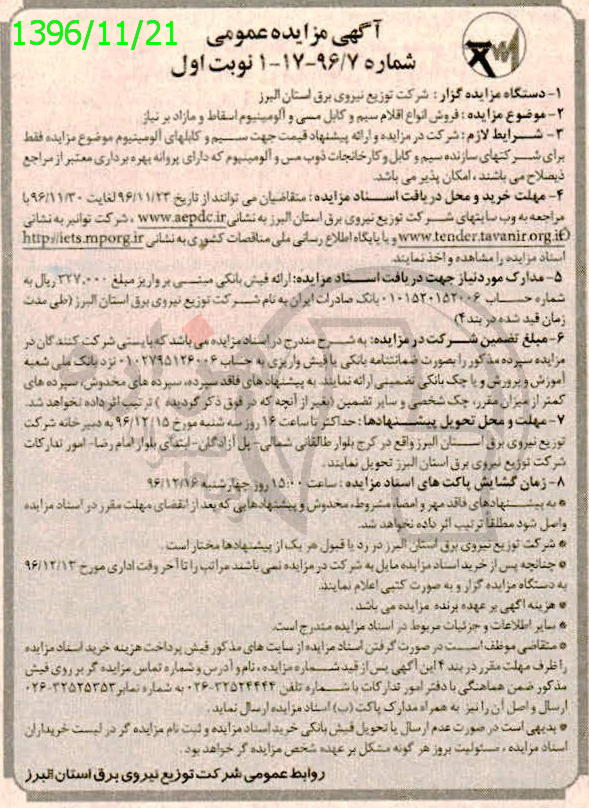 1396/11/21
آگهی مزایده عمومی
شماره ۹۶/۷-۱۷-۱ نوبت اول
۱- دستگاه مزایده گزار : شرکت توزیع نیروی برق استان البرز
۲- موضوع مزایده : فروش انواع اقلام سیم و کابل مسی و آلومینیوم اسقاط و مازاد بر نیاز
۳- شرایط لازم : شرکت در مزایده و ارائه پیشنهاد قیمت جهت سیم و کابلهای آلومینیوم موضوع مزایده فقط
برای شرکتهای سازنده سیم و کابل و کارخانجات ذوب مس و آلومینیوم که دارای پروانه بهره برداری معتبر از مراجع
ذیصلاح می باشند ، امکان پذیر می باشد.
۴- مهلت خرید و محل دریافت اسناد مزایده : متقاضیان می توانند از تاریخ ۹۶/۱۱/۲۳ لغایت ۹۶/۱۱/۳۰ با
مراجعه به وب سایتهای شرکت توزیع نیروی برق استان البرز به نشانی www.aepdc.ir ، شرکت توانیر به نشانی
www.tender.tavanir.org.ir و یا پایگاه اطلاع رسانی ملی مناقصات کشوری به نشانی http://iets.mporg.ir
اسناد مزایده را مشاهده و اخذ نمایند.
۵- مدارک مورد نیاز جهت دریافت اسناد مزایده : ارائه فیش بانکی مبنی بر واریز مبلغ ۳۲۷,۰۰۰ ریال به
شماره حساب ۰۱۰۱۵۲۰۱۵۲۰۰۶ بانک صادرات ایران به نام شرکت توزیع نیروی برق استان البرز (طی مدت
زمان قید شده در بند ۴)
۶- مبلغ تضمین شرکت در مزایده : به شرح مندرج در اسناد مزایده می باشد که بایستی شرکت کنندگان در
مزایده سپرده مذکور را بصورت ضمانتنامه بانکی یا فیش واریزی به حساب ۰۱۰۲۷۹۵۱۲۶۰۰۶ نزد بانک ملی شعبه
آموزش و پرورش و یا چک بانکی تضمینی ارائه نمایند. به پیشنهاد های فاقد سپرده، سپرده های مخدوش، سپرده های
کمتر از میزان مقرر، چک شخصی و سایر تضمین (بغیر از آنچه که در فوق ذکر گردیده ) ترتیب اثر داده نخواهد شد.
۷- مهلت و محل تحویل پیشنهادها : حداکثر تا ساعت ۱۶ روز سه شنبه مورخ ۹۶/۱۲/۱۵ به دبیرخانه شرکت
توزیع نیروی برق استان البرز واقع در کرج بلوار طالقانی شمالی- پل آزادگان- ابتدای بلوار امام رضا- امور تدارکات
شرکت توزیع نیروی برق استان البرز تحویل نمایند .
۸- زمان گشایش پاکت های اسناد مزایده : ساعت ۱۵:۰۰ روز چهارشنبه ۹۶/۱۲/۱۶
* به پیشنهادهای فاقد مهر و امضاء مشروط، مخدوش و پیشنهادهایی که بعد از انقضای مهلت مقرر در اسناد مزایده
واصل شود مطلقاً ترتیب اثر داده نخواهد شد.
* شرکت توزیع نیروی برق استان البرز در رد یا قبول هر یک از پیشنهادها مختار است .
* چنانچه پس از خرید اسناد مزایده مایل به شرکت در مزایده نمی باشند مراتب را تا آخر وقت اداری مورخ ۹۶/۱۲/۱۳
به دستگاه مزایده گزار و به صورت کتبی اعلام نمایند.
* هزینه آگهی بر عهده برنده مزایده می باشد .
* سایر اطلاعات و جزئیات مربوط در اسناد مزایده مندرج است.
* متقاضی موظف است در صورت گرفتن اسناد مزایده از سایت های مذکور فیش پرداخت هزینه خرید اسناد مزایده
را ظرف مهلت مقرر در بند ۴ این آگهی پس از قید شماره مزایده ، نام و آدرس و شماره تماس مزایده گر بر روی فیش
مذکور ضمن هماهنگی با دفتر امور تدارکات با شماره تلفن ۳۲۵۲۴۴۴۴-۰۲۶ به شماره نمابر ۳۲۵۲۵۳۵۳-۰۲۶
ارسال و اصل آن را نیز به همراه مدارک پاکت (ب) اسناد مزایده ارسال نماید .
* بدیهی است در صورت عدم ارسال یا تحویل فیش بانکی خرید اسناد مزایده و ثبت نام مزایده گر در لیست خریداران
اسناد مزایده ، مسئولیت بروز هر گونه مشکل بر عهده شخص مزایده گر خواهد بود .
روابط عمومی شرکت توزیع نیروی برق استان البرز